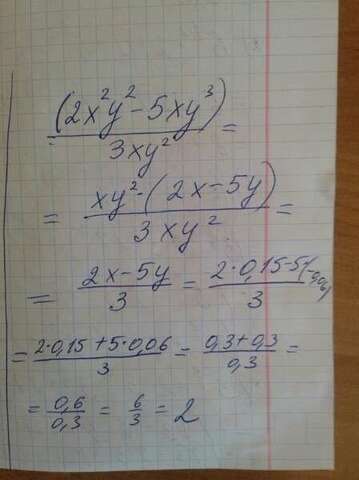 (2x²y² - 5xy³) / 3xy² =
= xy² · (2x - 5y) / 3xy² =
= (2x - 5y) / 3 = (2 · 0,15 - 5 · (-0,06)) / 3
= (2 · 0,15 + 5 · 0,06) / 3 = (0,3 + 0,3) / 0,3 =
= 0,6 / 0,3 = 6 / 3 = 2